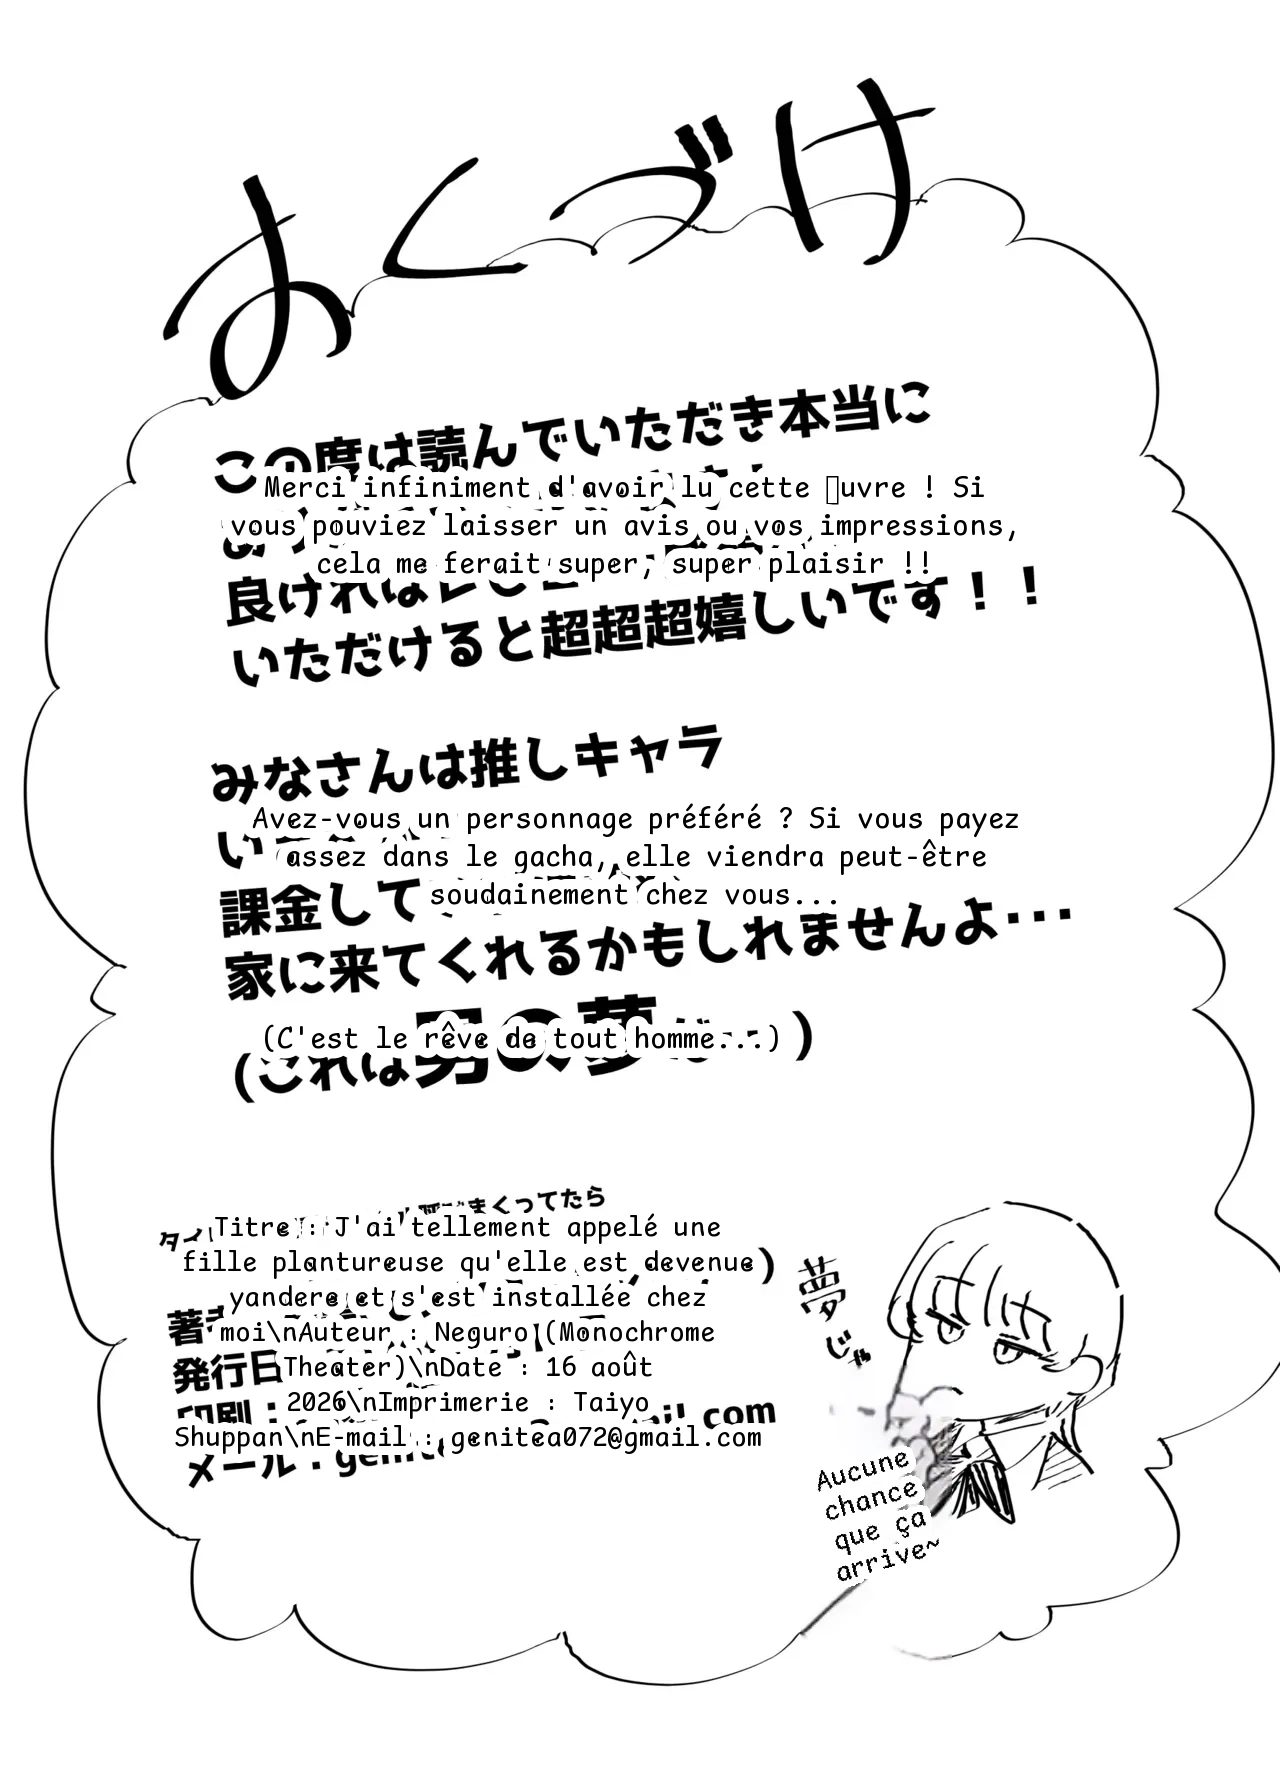 おくづけ
この度は読んでいただき本当に
Merci infiniment d'avoir lu cette □uvre ! Si
vous pouviez laisser un avis ou vos impressions,
cela me ferait super, super plaisir !!
良ければ
いただけると超超超嬉しいです！！
みなさんは推しキャラ
Avez-vous un personnage préféré ? Si vous payez
assez dans le gacha, elle viendra peut-être
soudainement chez vous...
課金して
家に来てくれるかもしれませんよ・・・
(C'est le rêve de tout homme...)
(これは男の夢 )
まくってたら
Titre : J'ai tellement appelé une
fille plantureuse qu'elle est devenue
yandere et s'est installée chez
moi\nAuteur : Neguro (Monochrome
Theater)\nDate : 16 août
2026\nImprimerie : Taiyo
Shuppan\nE-mail : genitea072@gmail.com
発行日
印刷：
mail.com
メール：
夢
じゃ
Aucune
chance
que ça
arrive~